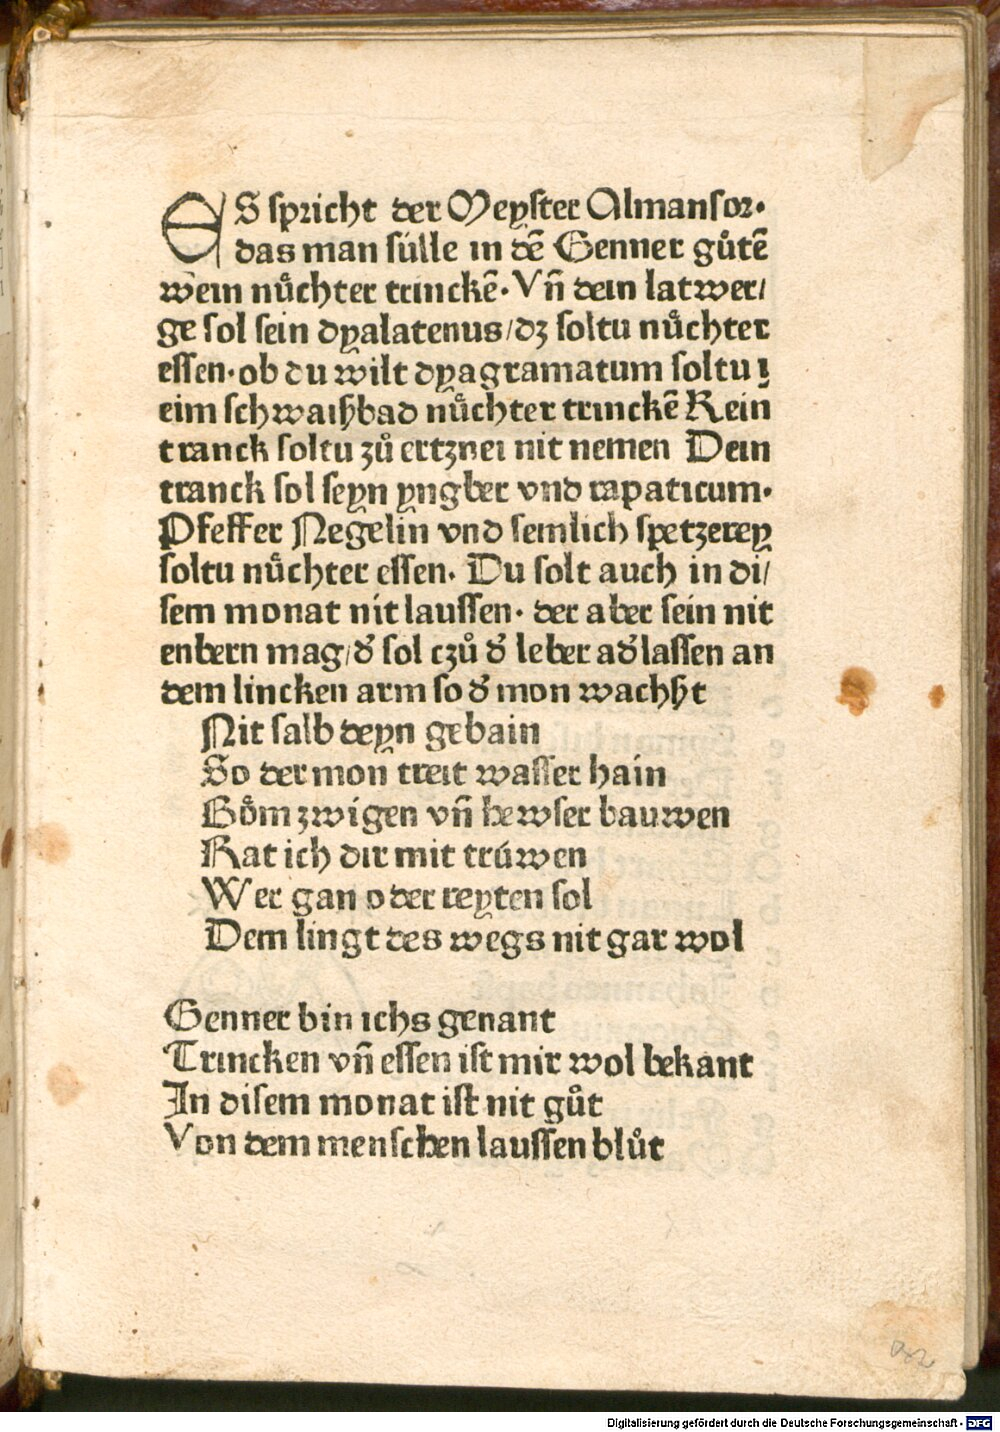 ES spricht der Meyster Almansor.
das man sülle in dē Genner gůtē
wein nůchter trinckē. Vn̄ dein latwer/
ge sol sein dyalatenus/dz soltu nůchter
essen. ob du wilt dyagramatum soltu ī
eim schwaißbad nůchter trinckē Kein
tranck soltu zů ertznei nit nemen Dein
tranck sol seyn yngber vnd rapaticum.
Pfeffer Negelin vnd semlich spetzerey
soltu nůchter essen. Du solt auch in di/
sem monat nit laussen. der aber sein nit
enbern mag/d' sol czů d' leber ad'lassen an
dem lincken arm so d' mon wachßt
Nit salb deyn gebain
So der mon treit wasser hain
Bo̊m zwigen vn̄ hewser bauwen
Rat ich dir mit trúwen
Wer gan oder reyten sol
Dem lingt des wegs nit gar wol
Genner bin ichs genant
Trincken vn̄ essen ist mir wol bekant
In disem monat ist nit gůt
Von dem menschen laussen blůt
Digitalisierung gefördert durch die Deutsche Forschungsgemeinschaft - DFG